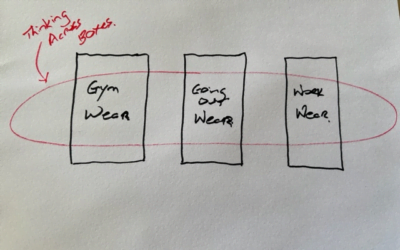 Thinking
Across
Boxes.
Gym
Wear
Going
Out
Wear.
Work
Wear.